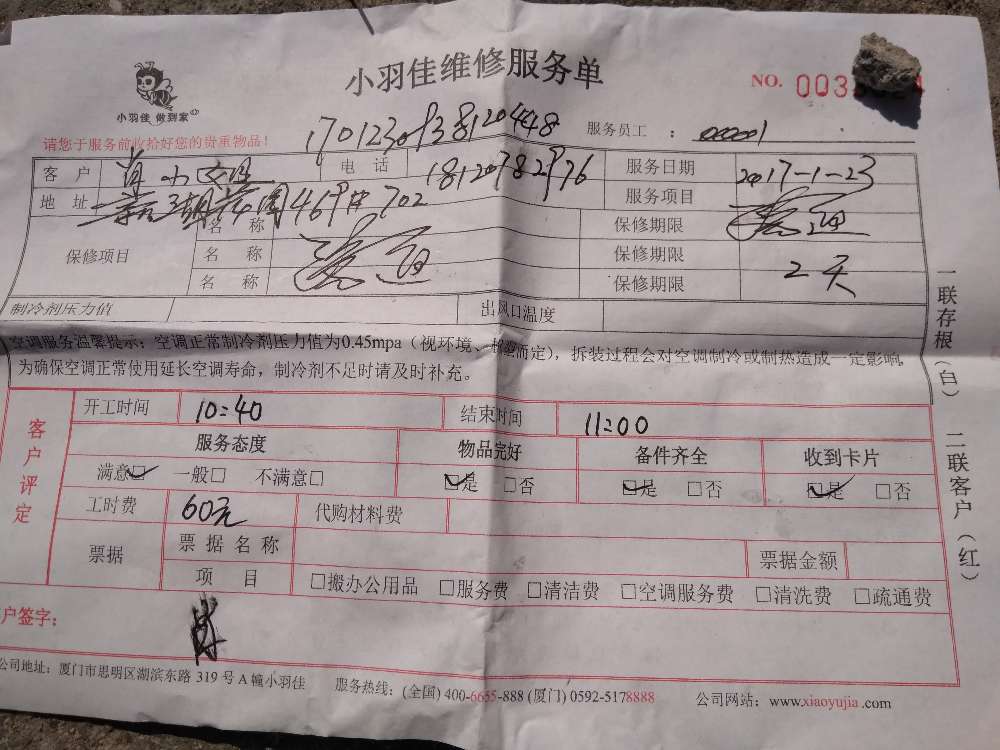 小羽佳维修服务单
小羽佳 做到家
NO. 003
请您于服务前收拾好您的贵重物品!
服务员工 : 00001
客户 小 电话 18120782976 服务日期 2017-1-23
地址 46 702 服务项目
保修项目 名称 保修期限
名称 保修期限
名称 保修期限 2天
制冷剂压力值 出风口温度
空调服务温馨提示:空调正常制冷剂压力值为0.45mpa(视环境、 而定),拆装过程会对空调制冷或制热造成一定影响,
为确保空调正常使用延长空调寿命,制冷剂不足时请及时补充。
客户评定
开工时间 10:40 结束时间 11:00
服务态度 物品完好 备件齐全 收到卡片
满意☑ 一般□ 不满意□ ☑是 □否 ☑是 □否 ☑是 □否
工时费 60元 代购材料费
票据 票据名称 票据金额
项目 □搬办公用品 □服务费 □清洁费 □空调服务费 □清洗费 □疏通费
户签字:
公司地址:厦门市思明区湖滨东路 319 号 A 幢小羽佳 服务热线:(全国) 400-6655-888 (厦门) 0592-5178888 公司网站:www.xiaoyujia.com
一联存根(白) 二联客户(红)